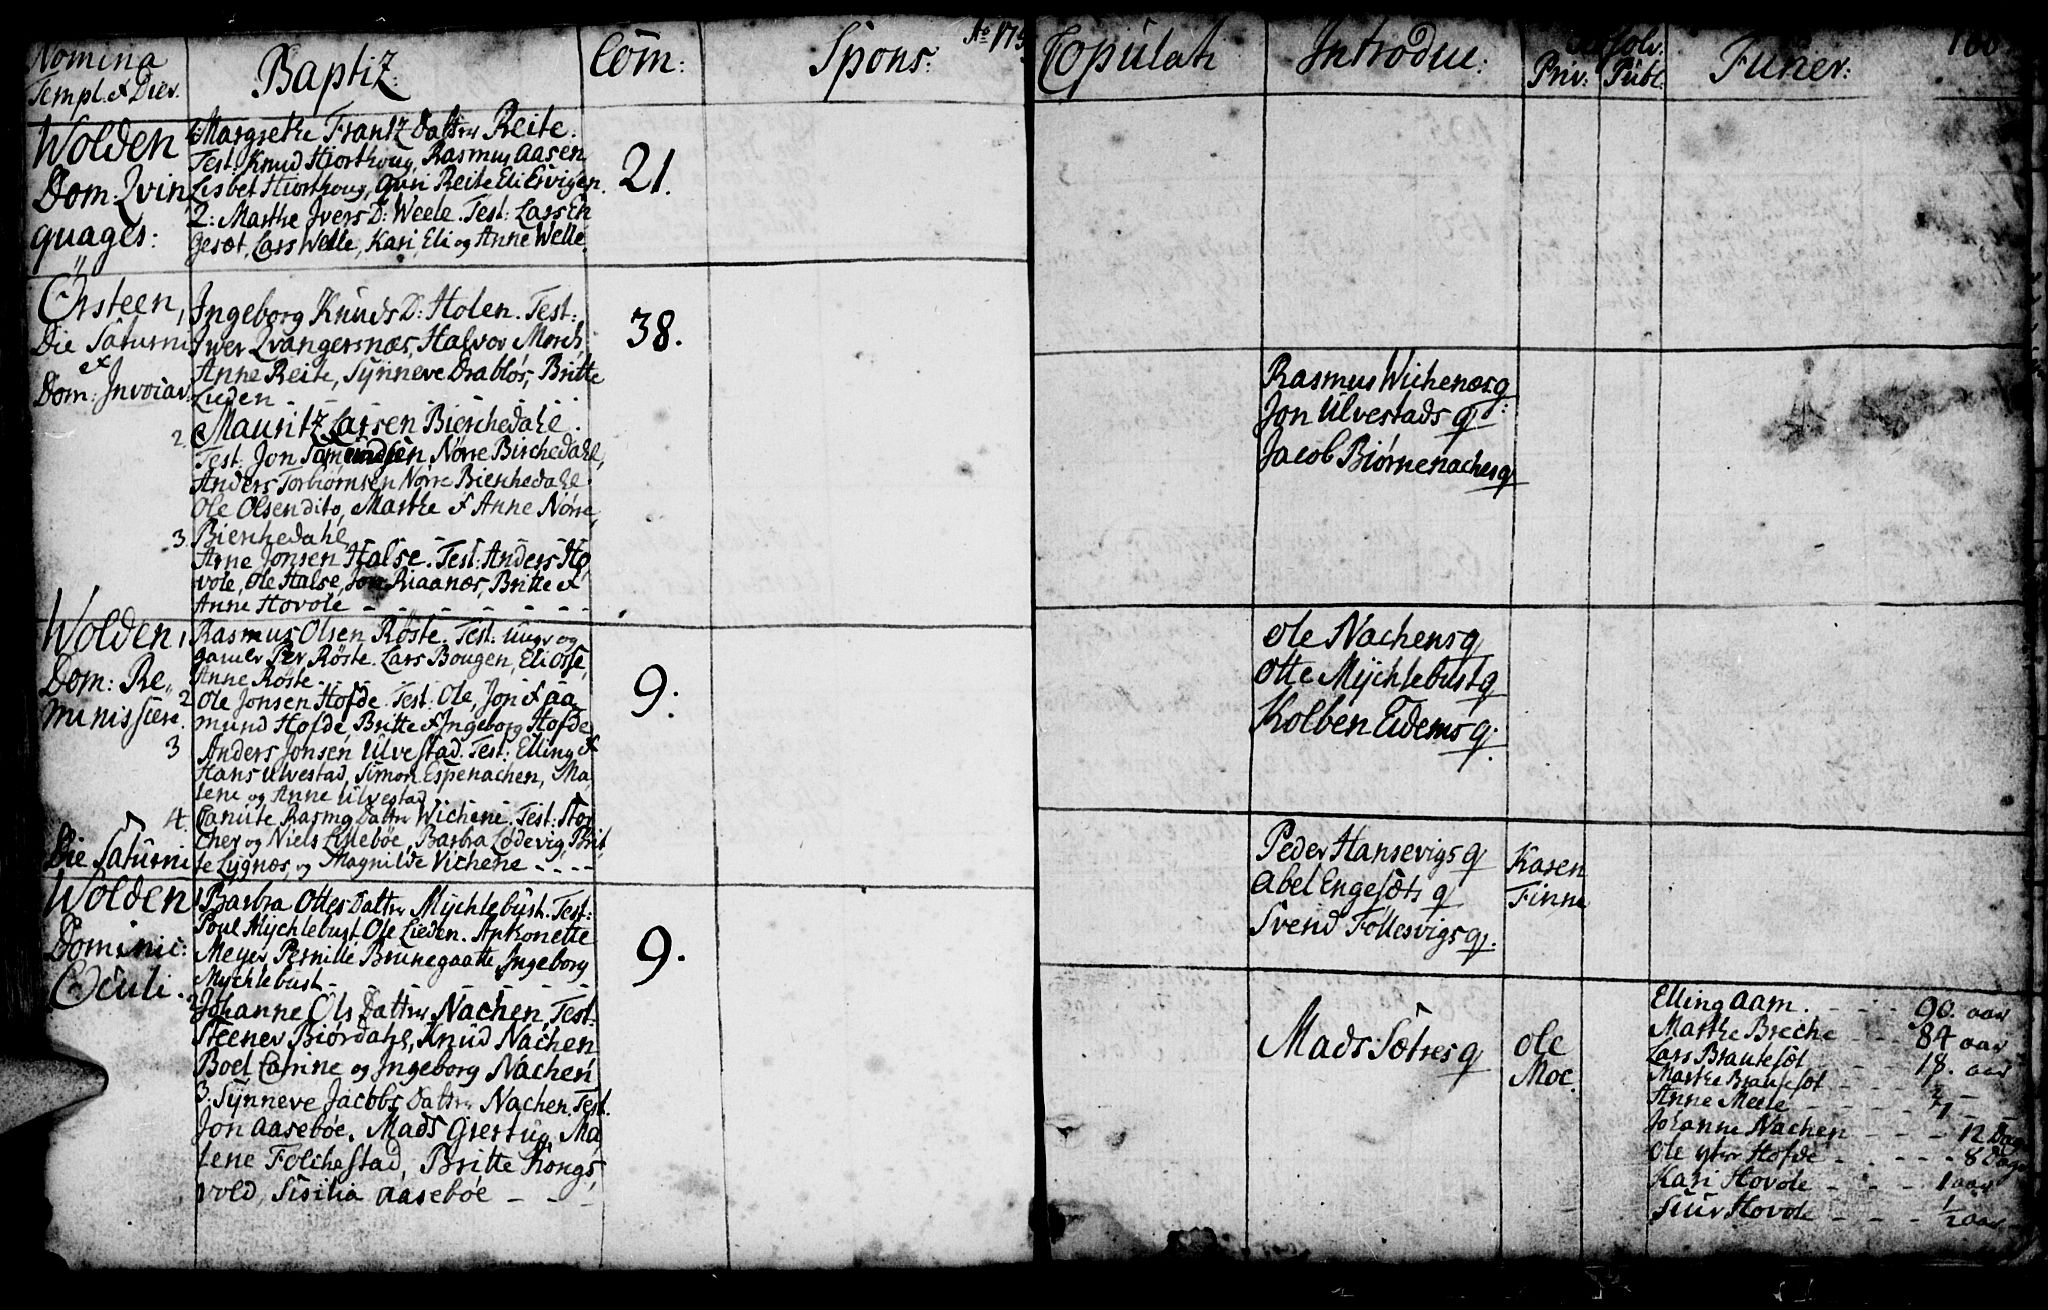 Nomina
Templ. & Dier.
Baptiz:
Com:
Spons:
Ao 175
Copulati
Introduc:
Absolv.
Priv: Publ.
Funer:
Wolden
Dom: Qvin
quages:
1. Margrethe Frantz Datter Reite.
Test: Knud Hiorthoug, Rasmus Aasen
Lisbet Hiorthoug, Guri Reite Eli Ervigen.
2: Marthe Ivers D: Weele. Test: Lars En
gesæt, Lars Welle, Kari, Eli og Anne Welle.
21.
Ørsteen,
Die Saturni
&
Dom: Invocav:
Ingeborg Knuds D: Holen. Test:
Iver Qvangersnæs, Halvor Morch,
Anne Reite, Synneve Drabløs, Britte
Lieden - - - - - - -
2. Mauritz Larsen Bierchedahl.
Test. Jon Nørre Birchedahl,
Anders Torbiørnsen Nørre Bierchedahl
Ole Olsen dito, Marthe & Anne Nørre,
Bierchedahl
3. Arne Jonsen Halse. Test: Anders Ho,
vole, Ole Halse, Jon Riaanæs, Britte &
Anne Hovole - - - - - -
38.
Rasmus Wichenæs q
Jon Ulvestads q:
Jacob Biørnenaches q
Wolden
Dom: Re,,
miniscere.
1 Rasmus Olsen Røste. Test: ungr og
gamler Per Røste. Lars Bougen, Eli Osse,
Anne Røste - - -
2 Ole Jonsen Hofde. Test: Ole, Jon & Aa
mund Hofde, Britte & Ingeborg Hofde
3 Anders Jonsen Ulvestad. Test: Elling &
Hans Ulvestad, Simon Espenachen, Ma,
lene og Anne Ulvestad
4. Canute Rasmq Datter Wichene. Test:
og Niels Lillebøe, Barbra Lødevig, Brit,
te Lygnæs, og Magnilde Vichene - - - -
9.
Ole Nachens q
Otte Mychlebust q
Kolben Eidems q.
Die Saturni
Peder Hansevigs q
Abel Engesæts q
Svend Follesvigs q.
Karen
Finne
Wolden
Dominic:
Oculi.
1 Barbra Ottes Datter Mychlebust. Test:
Poul Mychlebust Ole Lieden. Apkonette
Meyer Pernille Brunegaatte, Ingeborg
Mychlebust - - - - - - -
2 Johanne Ols Datter Nachen, Test:
Steener Biørdahl, Knud Nachen
Boel Canine og Ingeborg Nachen
3. Synneve Jacobs Datter Nachen. Test.
Jon Aasebøe, Mads Giertug, Ma,
lene Folchestad, Britte Kongs,
vold, Sisilia Aasebøe - -
9.
Mads Sætres q
Ole
Moe.
Elling Aam. - - - 90. aar
Marthe Breche - - 84 aar
Lars Brautesæt - - - 18. aar
Marthe Brautesæt - - -
Anne Meele - - - -
Johanne Nachen - - - 12 Dage
Ole yttre Hofde - - - - 8 Dage
Kari Hovole - - - 1 aar
Siur Hovole - - - 1/2 aar